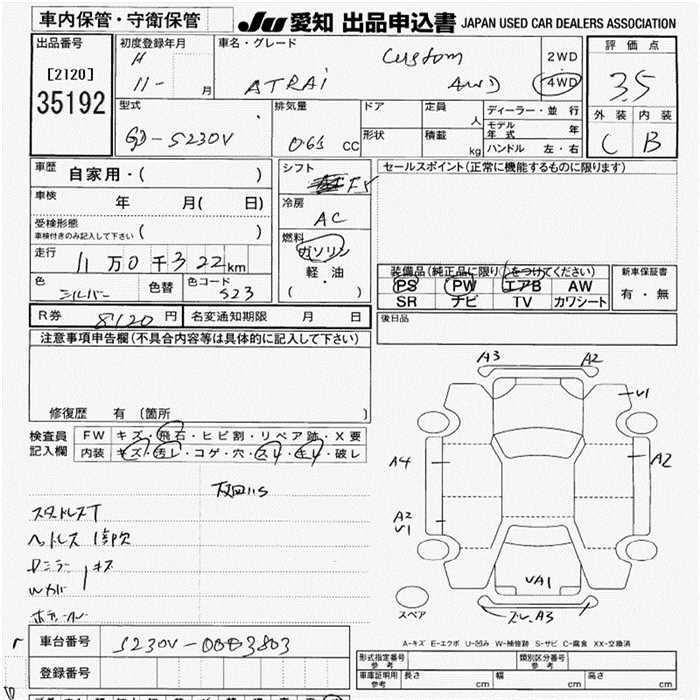 車内保管・守衛保管
JU 愛知 出品申込書 JAPAN USED CAR DEALERS ASSOCIATION
出品番号
[2120]
35192
初度登録年月
H
11- 月
車名・グレード
ATRAi Custom AWD
2WD
4WD
評価点
3.5
外装 内装
C B
型式
GD-S230V
排気量
0.66 CC
ドア
形状
定員
人
積載
kg
ディーラー・並行
モデル年式 年
ハンドル 左・右
車歴
自家用・( )
車検
年 月( 日)
受検形態
車検付きのみ記入して下さい ( )
走行
11万0千322km
色
シルバー
色替
色コード
S23
シフト
F5
冷房
AC
燃料
ガソリン
軽・油
( ・ )
セールスポイント(正常に機能するものに限ります)
装備品(純正品に限り○をつけてください)
PS PW エアB AW
SR ナビ TV カワシート
新車保証書
有・無
後日品
R券 8120円
名変通知期限 月 日
注意事項申告欄(不具合内容等は具体的に記入して下さい)
修復歴 有 (箇所 )
検査員
記入欄
FW キズ・飛石・ヒビ割・リペア跡・X要
内装 キズ・汚レ・コゲ・穴・スレ・キレ・破レ
スタットレスT
Dミラー キズ
Wカバー
A3
A2
V1
A4
A2
A2
V1
VA1
A3
スペア
A-キズ E-エクボ U-凹み W-補修跡 S-サビ C-腐食 XX-交換済
車台番号
S230V-0083803
登録番号
形式指定番号
参考
類別区分番号
参考
車庫証明用
参考
長さ cm
幅 cm
高さ cm